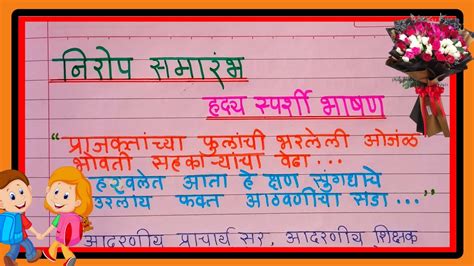 निरोप समारंभ
हृदय स्पर्शी भाषण
“प्राजक्तांच्या फुलांची भरलेली ओंजळ
भोवती सहकाऱ्यांचा वेढा ...
हरवलेत आता हे क्षण सुंगधाचे
उरलाय फक्त आठवणींचा सडा ...”
आदरणीय प्राचार्य सर, आदरणीय शिक्षक